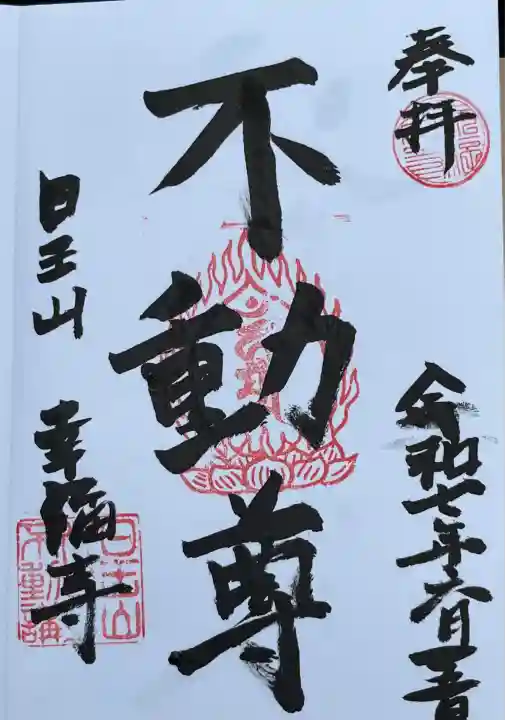 奉拝
令和七年六月
不動尊
日王山 幸福寺
日王山